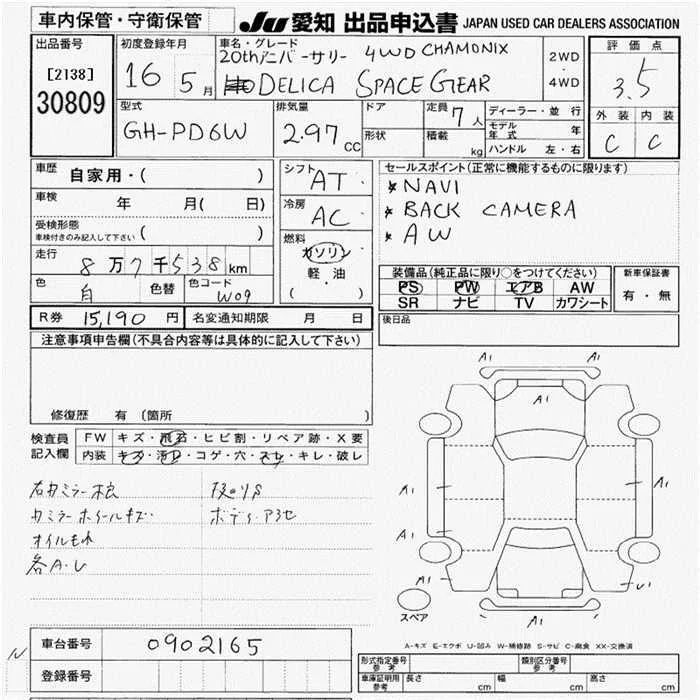 車内保管・守衛保管 JU 愛知 出品申込書 JAPAN USED CAR DEALERS ASSOCIATION
出品番号 初度登録年月 車名・グレード 20thアニバーサリー 4WD CHAMONIX 2WD 評価点
[2138] 16 5月 DELICA SPACE GEAR ・ 4WD 3.5
30809 型式 排気量 ドア 定員 7人 ディーラー・並行 外装 内装
GH-PD6W 2.97 CC 形状 積載 kg モデル年式 年 C C
ハンドル 左・右
車歴 自家用・( ) シフト AT セールスポイント(正常に機能するものに限ります)
車検 年 月( 日) 冷房 AC *NAVI
受検形態 *BACK CAMERA
車検付きのみ記入して下さい ( ) 燃料 *AW
走行 8万7千538km ガソリン
軽・油
( )
装備品(純正品に限り○をつけてください) 新車保証書
色 白 色替 色コード W09 PS PW エアB AW 有・無
SR ナビ TV カワシート
R券 15,190円 名変通知期限 月 日 後日品
注意事項申告欄(不具合内容等は具体的に記入して下さい)
修復歴 有 (箇所 )
検査員記入欄 FW キズ・飛石・ヒビ割・リペア跡・X要
内装 キズ・汚レ・コゲ・穴・スレ・キレ・破レ
右カミラー
カミラー ホイールキズ ボディ
オイルもれ
各A・U
A1 A1
A1
A1 A1
A1
A1 U1
A1
スペア
A-キズ E-エクボ U-凹み W-補修跡 S-サビ C-腐食 XX-交換済
車台番号 0902165
登録番号
形式指定番号 参考 類別区分番号 参考
車庫証明用 参考 長さ cm 幅 cm 高さ cm